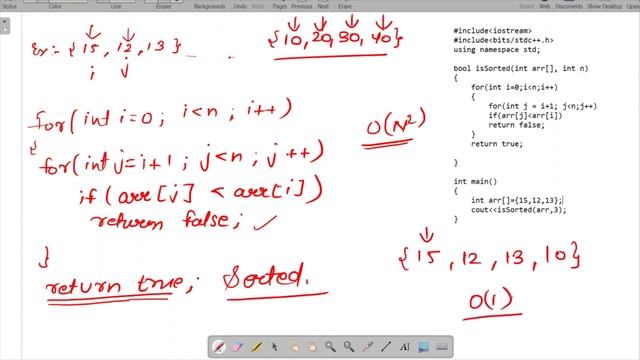 Stylus Color Line Eraser Background Undo Redo Page Previous Next Erase
Ex:- {15, 12, 13} - - .
i j
{10, 20, 30, 40}
for(int i=0; i<n; i++)
{
for(int j=i+1; j<n; j++)
if(arr[j] < arr[i])
return false;
}
return true; Sorted.
O(N²)
#include<iostream>
#include<bits/stdc++.h>
using namespace std;
bool isSorted(int arr[], int n)
{
for(int i=0;i<n;i++)
{
for(int j = i+1; j<n;j++)
if(arr[j]<arr[i])
return false;
}
return true;
}
int main()
{
int arr[]={15,12,13};
cout<<isSorted(arr,3);
}
{15, 12, 13, 10}
O(1)